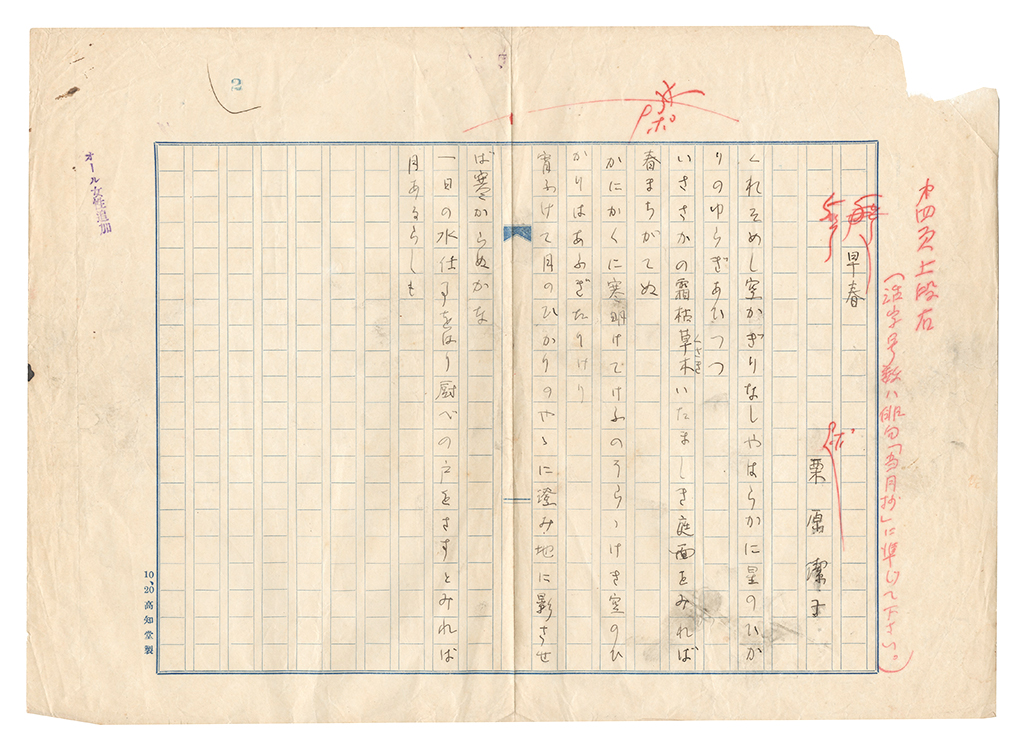 2
才四頁上段右
(活字号数ハ俳句「当月抄」に準じて下さい。)
早春
栗原潔子
くれそめし空かぎりなしやはらかに星のひか
りのゆらぎあひつつ
いさゝかの霜枯草木いたましき庭面をみれば
くさき
春まちがてぬ
かにかくに寒明けてけふのうらゝけき空のひ
かりはあふぎたりけり
宵ふけて月のひかりのやゝに澄み地に影させ
ば寒からぬかな
一日の水仕事をはり厨べの戸をさすとみれば
月あるらしも
オール女性追加
10、20高知堂製